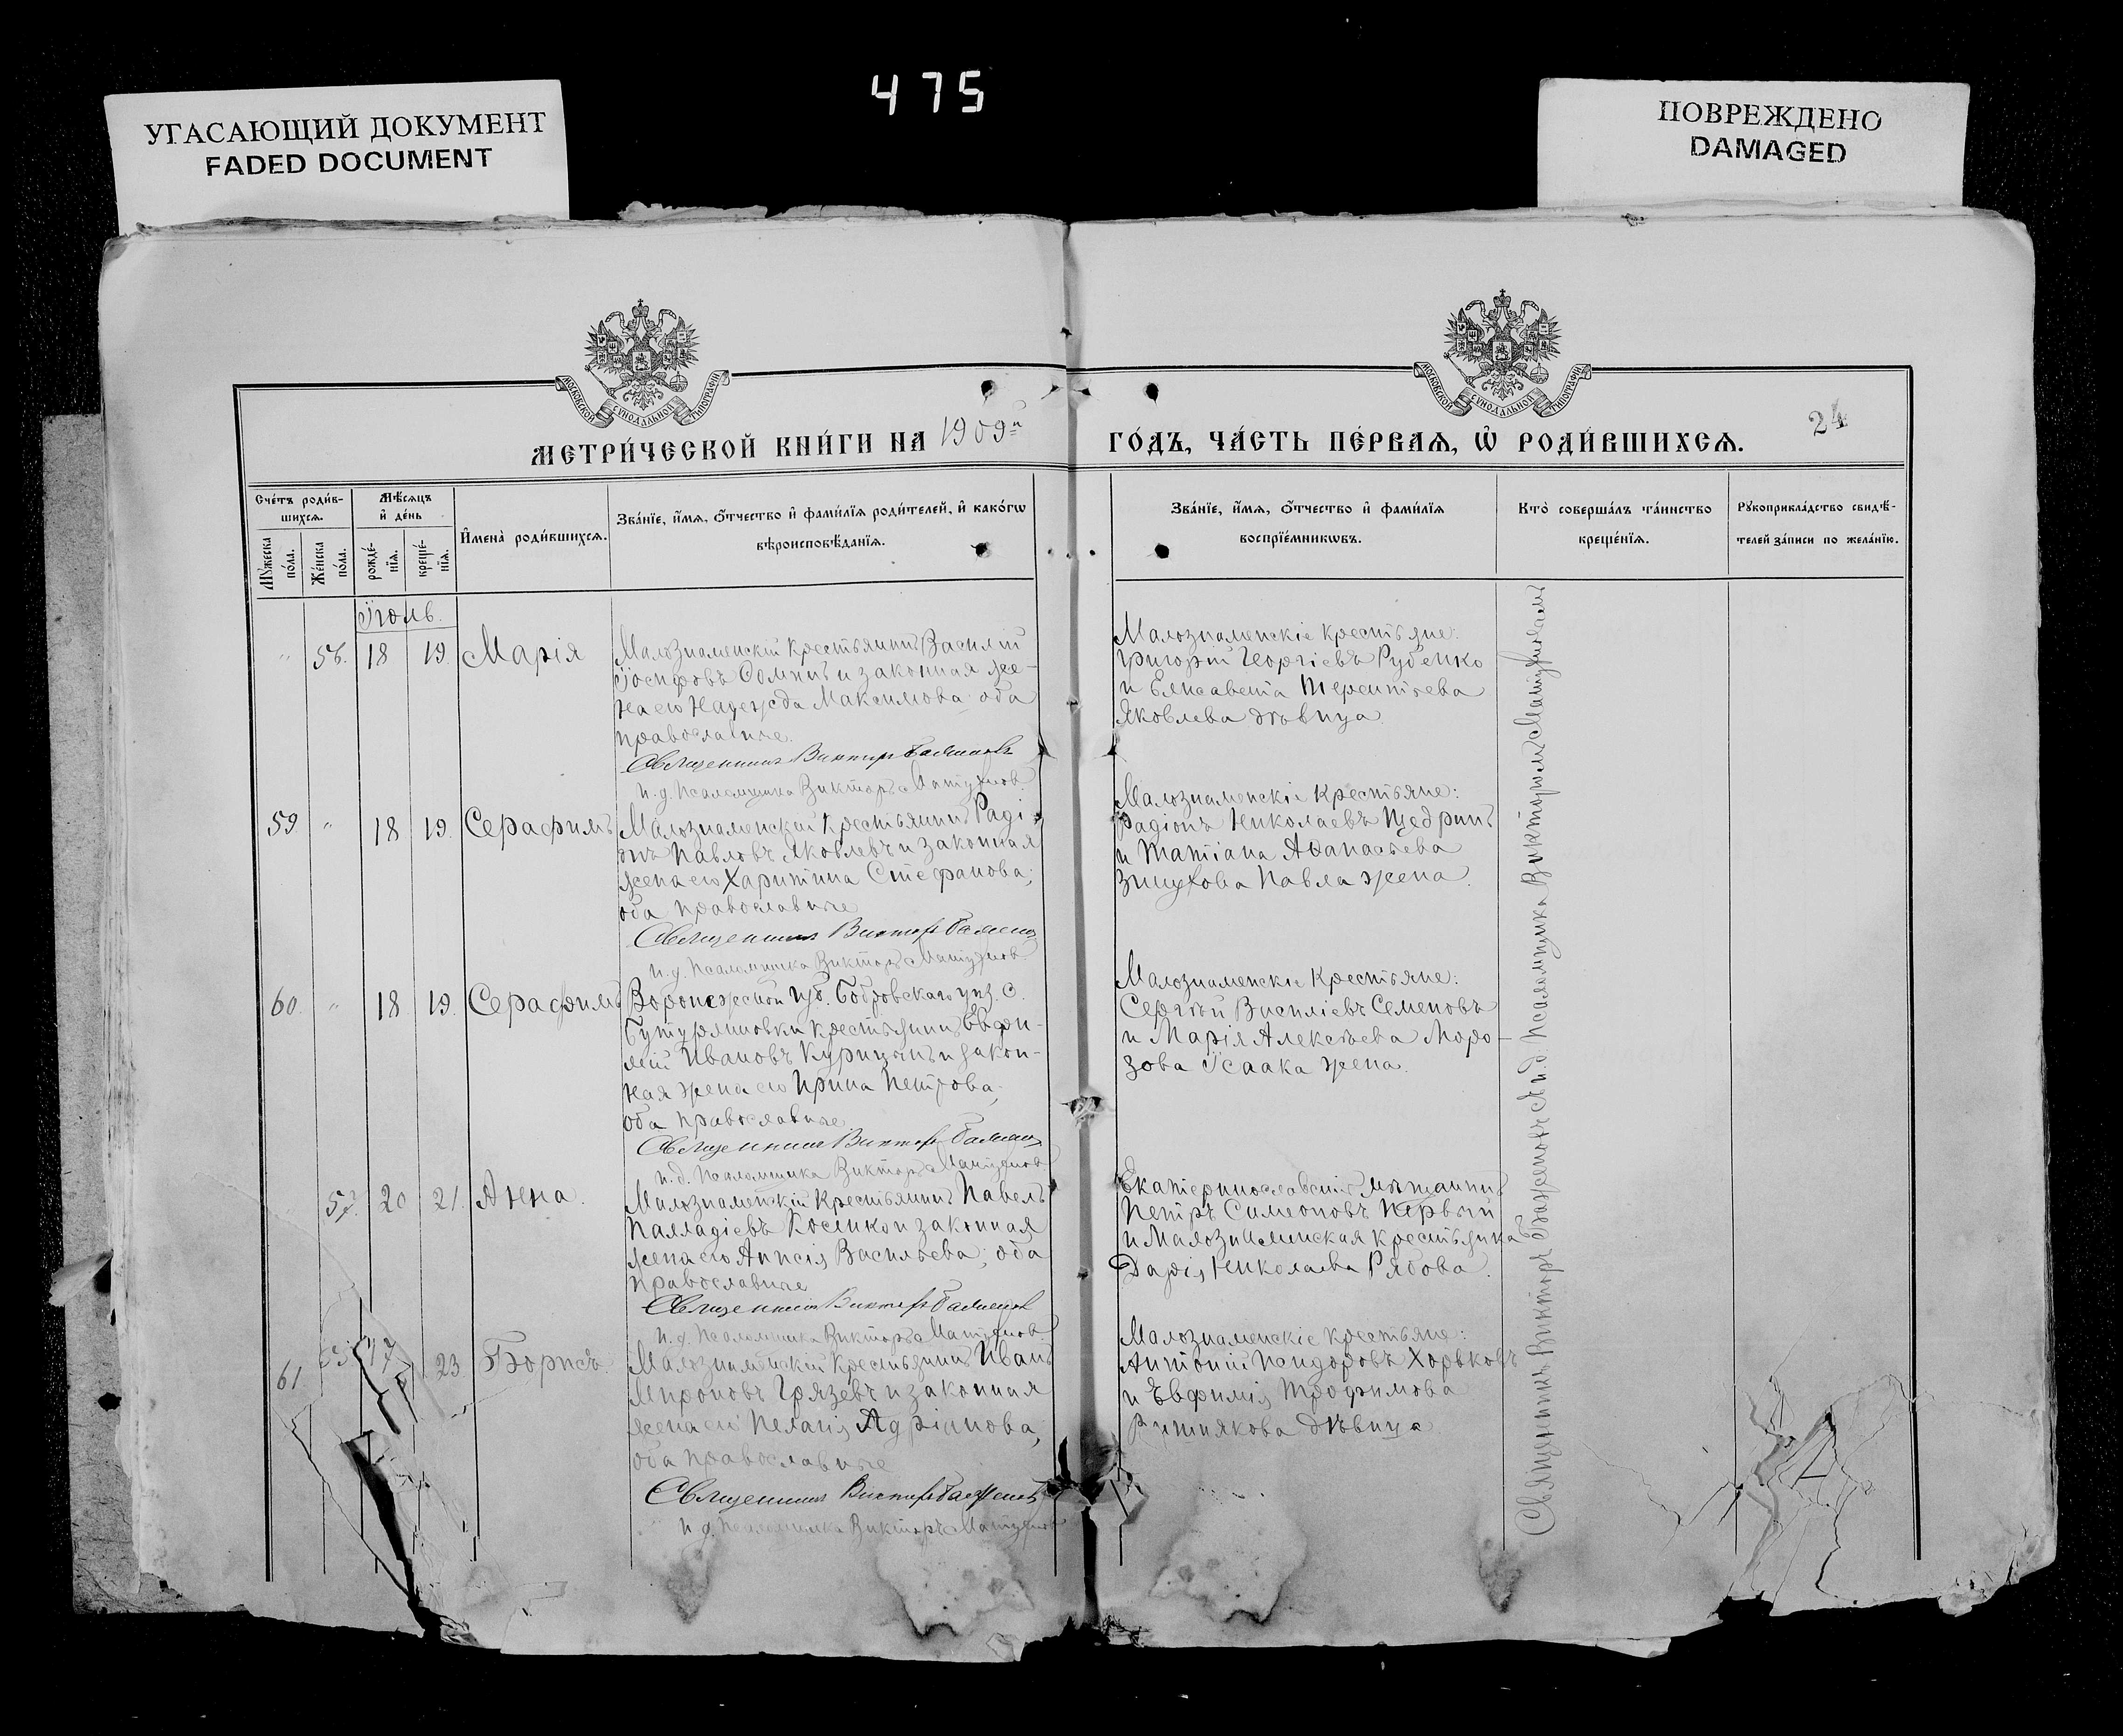 475
УГАСАЮЩИЙ ДОКУМЕНТ
FADED DOCUMENT
ПОВРЕЖДЕНО
DAMAGED
МОСКОВСКОЙ СУНОДАЛЬНОЙ ТИПОГРАФІИ
МОСКОВСКОЙ СУНОДАЛЬНОЙ ТИПОГРАФІИ
24
МЕТРИ́ЧЕСКОЙ КНИ́ГИ НА 1909й ГО́ДЪ, ЧА́СТЬ ПЕ́РВАѦ, Ѡ҆ РОДИ́ВШИХСѦ.
Сче́тъ роди́в-
шихсѧ.
Мѣ́сѧцъ
и҆ де́нь
Мꙋ́жеска
по́ла.
Же́нска
по́ла.
рожде́-
нїѧ.
креще́-
нїѧ.
И҆мена̀ роди́вшихсѧ.
Зва́нїе, и҆́мѧ, о҆́тчество и҆ фами́лїѧ роди́телей, и҆ како́гѡ
вѣроисповѣ́данїѧ.
Зва́нїе, и҆́мѧ, о҆́тчество и҆ фами́лїѧ
воспрїе́мникѡвъ.
Кто̀ соверша́лъ та́инство
креще́нїѧ.
Рꙋкоприкла́дство свидѣ́-
телей за́писи по жела́нїю.
Іюль.
" 56. 18 19. Марія
Малознаменскій крестьянинъ Василій
Іосифовъ Соминъ и законная же-
на его Надежда Максимова; оба
православные.
Священникъ Викторъ Баженовъ
и. д. Псаломщика Викторъ
Малознаменскіе крестьяне:
Григорій Георгіевъ Рубенко
и Елисавета Терентьева
Яковлева дѣвица.
59. " 18 19. Серафимъ
Малознаменскій крестьянинъ Раді-
онъ Павловъ Яковлевъ и законная
жена его Харитина Стефанова;
оба православные
Священникъ Викторъ Баженовъ
и. д. Псаломщика Викторъ
Малознаменскіе крестьяне:
Радіонъ Николаевъ Щедринъ
и Татіана Аѳанасьева
Павла жена.
60. " 18 19. Серафимъ
Воронежской губ. Бобровскаго уѣз. с.
Бутурлиновки крестьянинъ Евфи-
мій Ивановъ Курицынъ и закон-
ная жена его Ирина Петрова;
оба православные.
Священникъ Викторъ Баженовъ
и. д. Псаломщика Викторъ
Малознаменскіе крестьяне:
Сергѣй Василіевъ Семеновъ
и Марія Алексѣева Моро-
зова Исаака жена.
57. 20 21. Анна.
Малознаменскій крестьянинъ Павелъ
Палладіевъ Косенко и законная
жена его Анисія Васильева; оба
православные
Священникъ Викторъ Баженовъ
и. д. Псаломщика Викторъ
Екатеринославскій мѣщанинъ
Петръ Симеоновъ Первый
и Малознаменская крестьянка
Дарія Николаева Рябова.
61 23 Борисъ.
Малознаменскій крестьянинъ Иванъ
Мироновъ Грязевъ и законная
жена его Пелагія Адріанова;
оба православные
Священникъ Викторъ Баженовъ
и. д. Псаломщика Викторъ
Малознаменскіе крестьяне:
Антоній Исидоровъ Хорьковъ
и Евфимія Трофимова
дѣвица
Священникъ Викторъ Баженовъ и и. д. Псаломщика Викторомъ